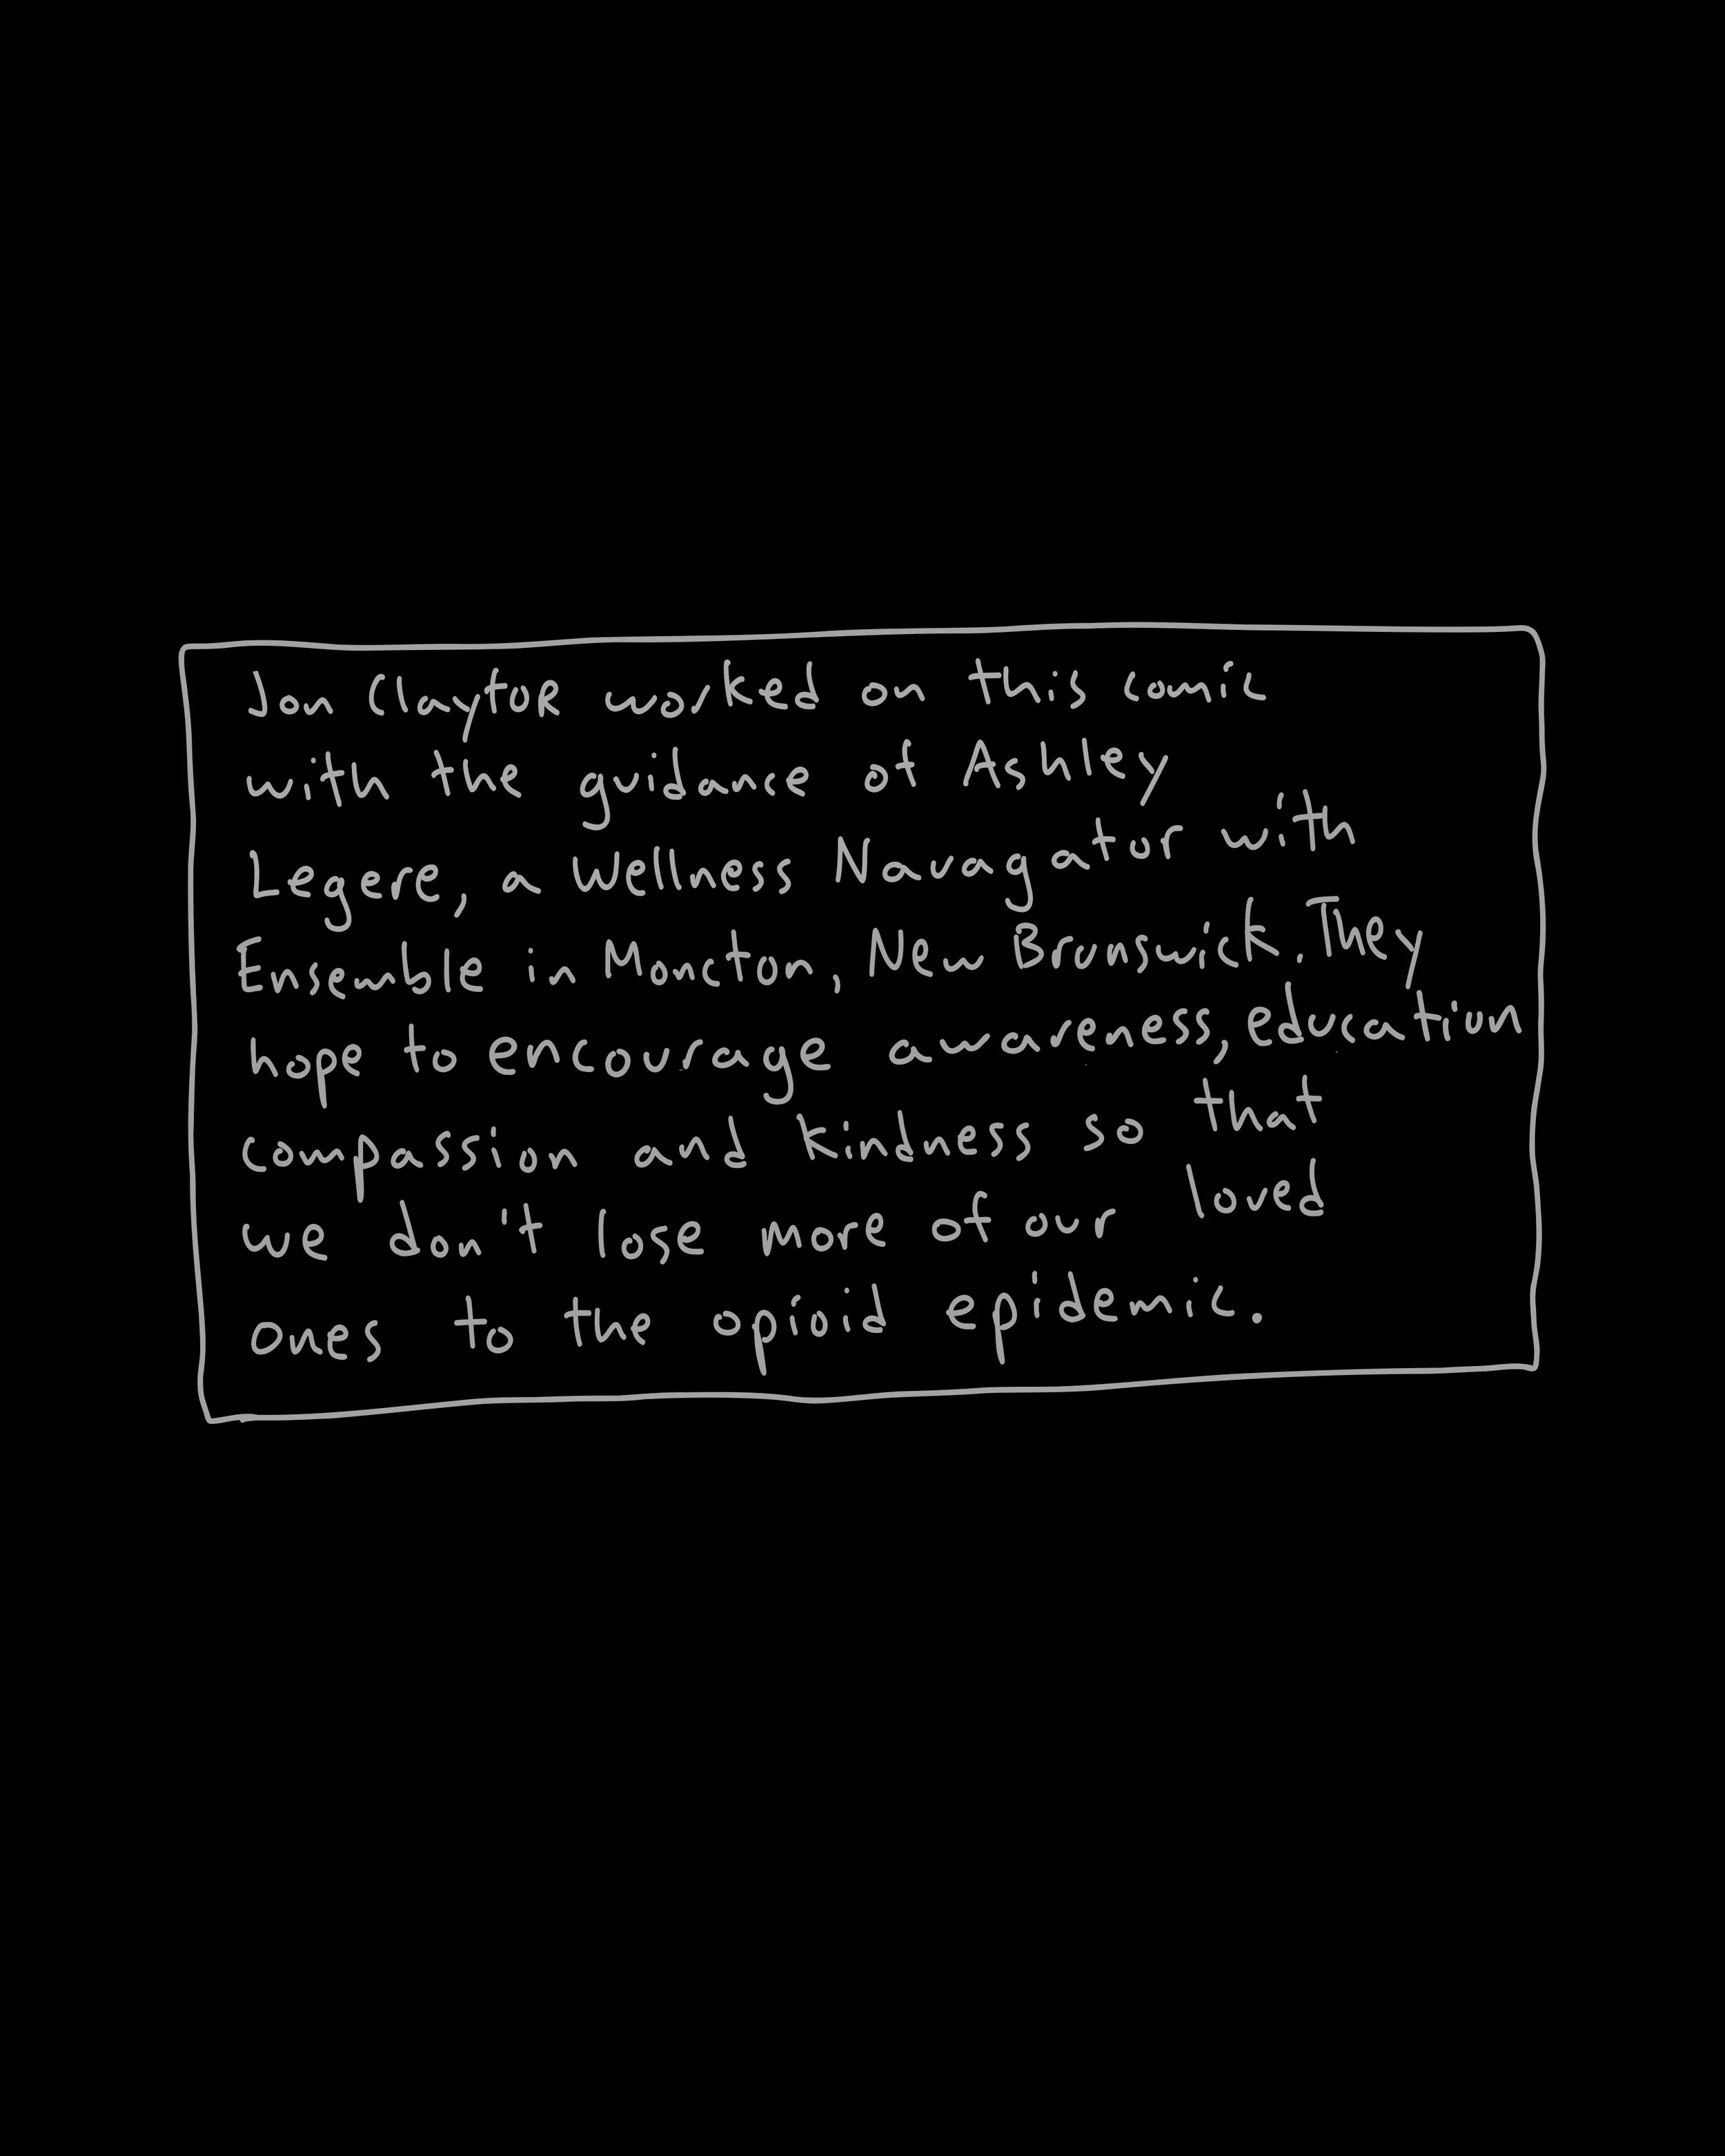 Jon Claytor worked on this comic
with the guidance of Ashley
Legere, a Wellness Navagator with
Ensemble in Moncton, New Brunswick. They
hope to encourage awareness, education
compassion and kindness so that
we don't lose more of our loved
ones to the opioid epidemic.